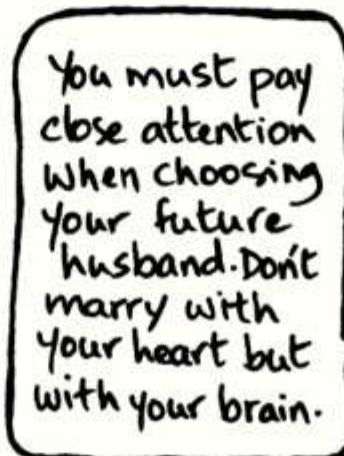 You must pay
close attention
when choosing
your future
husband. Don't
marry with
your heart but
with your brain.